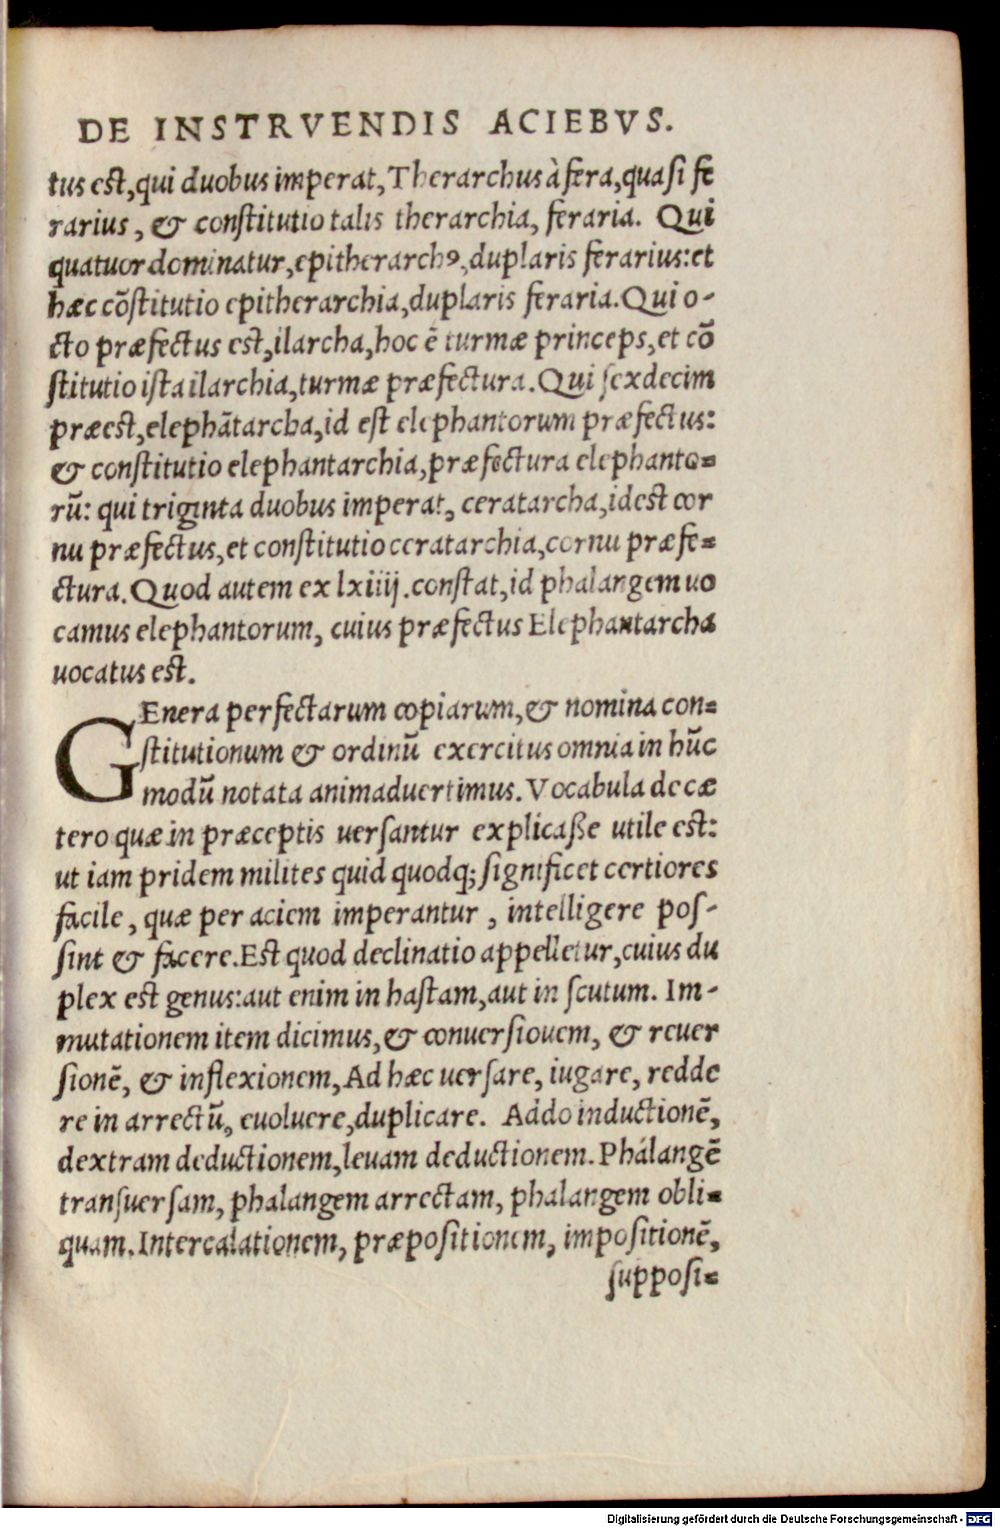 DE INSTRVENDIS ACIEBVS.
tus est,qui duobus imperat,Therarchus à fera,quasi fe
rarius, & constitutio talis therarchia, feraria. Qui
quatuor dominatur,epitherarchꝰ,duplaris ferarius:et
hæc cõstitutio epitherarchia,duplaris feraria.Qui o-
cto præfectus est,ilarcha,hoc ē turmæ princeps,et cõ
stitutio ista ilarchia,turmæ præfectura.Qui sexdecim
præest,elephātarcha,id est elephantorum præfectus:
& constitutio elephantarchia,præfectura elephanto-
rū: qui triginta duobus imperat, ceratarcha,idest cor
nu præfectus,et constitutio ceratarchia,cornu præfe-
ctura.Quod autem ex lxiiij.constat,id phalangem uo
camus elephantorum, cuius præfectus Elephantarcha
uocatus est.
GEnera perfectarum copiarum,& nomina con-
stitutionum & ordinū exercitus omnia in hūc
modū notata animaduertimus.Vocabula de cæ
tero quæ in præceptis uersantur explicaße utile est:
ut iam pridem milites quid quodq; significet certiores
facile, quæ per aciem imperantur, intelligere pos-
sint & facere.Est quod declinatio appelletur,cuius du
plex est genus:aut enim in hastam,aut in scutum. Im-
mutationem item dicimus,& conuersiouem, & reuer
sionē, & inflexionem,Ad hæc uersare, iugare, redde
re in arrectū, euoluere,duplicare. Addo inductionē,
dextram deductionem,leuam deductionem.Phálangē
transuersam, phalangem arrectam, phalangem obli-
quam.Intercalationem, præpositionem, impositionē,
supposi-
Digitalisierung gefördert durch die Deutsche Forschungsgemeinschaft - DFG